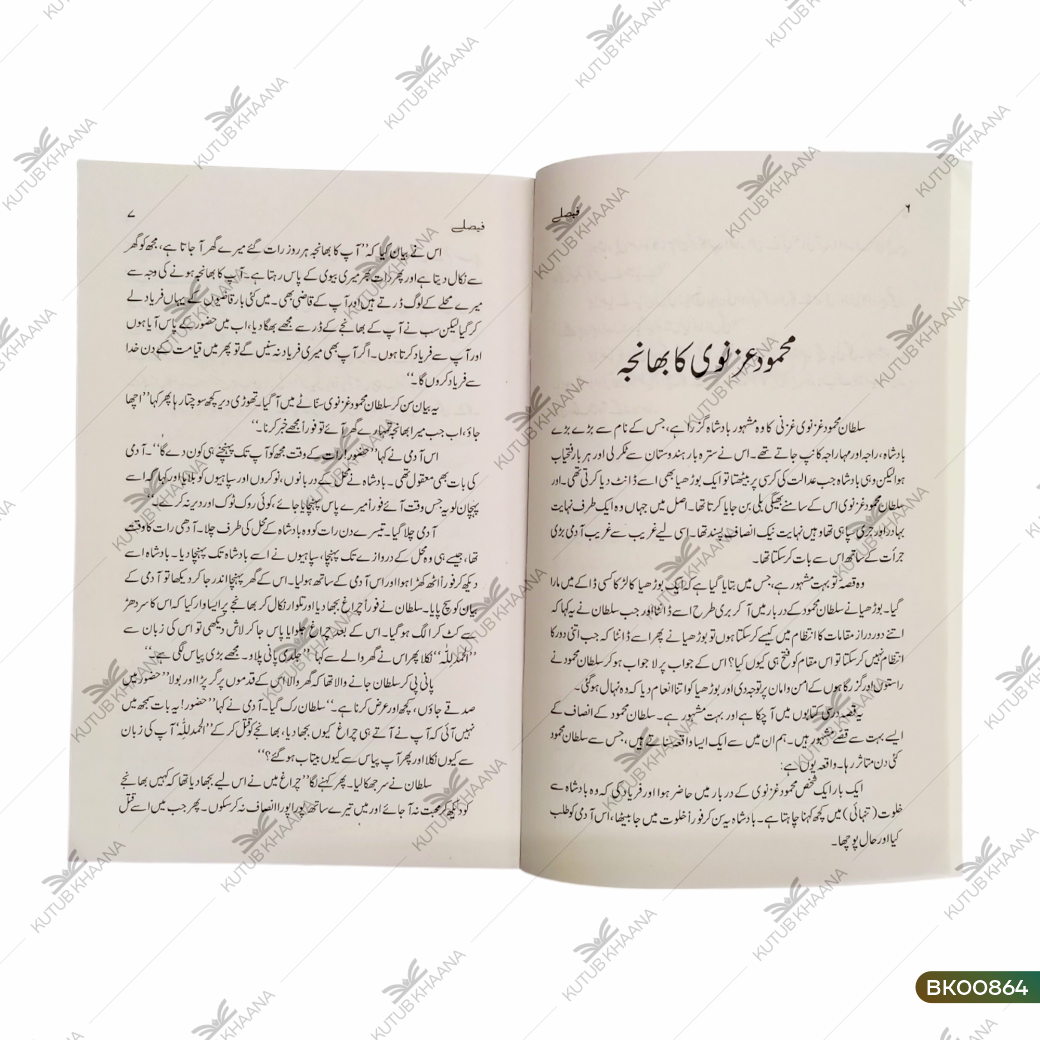 ۶
فیصلے
محمود غزنوی کا بھانجہ
سلطان محمود غزنوی غزنی کا وہ مشہور بادشاہ گزرا ہے، جس کے نام سے بڑے بڑے
بادشاہ، راجہ اور مہاراجہ کانپ جاتے تھے۔ اس نے سترہ بار ہندوستان سے ٹکر لی اور ہر بار فتحیاب
ہوا لیکن وہی بادشاہ جب عدالت کی کرسی پر بیٹھتا تو ایک بوڑھیا بھی اسے ڈانٹ دیا کرتی تھی۔ اور
سلطان محمود غزنوی اس کے سامنے بھیگی بلی بن جایا کرتا تھا۔ اصل میں جہاں وہ ایک طرف نہایت
بہادر اور جری سپاہی تھا وہیں نہایت نیک انصاف پسند تھا۔ اسی لیے غریب سے غریب آدمی بڑی
جرأت کے ساتھ اس سے بات کر سکتا تھا۔
وہ قصہ تو بہت مشہور ہے، جس میں بتایا گیا ہے کہ ایک بوڑھیا کا لڑکا کسی ڈاکے میں مارا
گیا۔ بوڑھیا نے سلطان محمود کے دربار میں آ کر بری طرح اسے ڈانٹا اور جب سلطان نے یہ کہا کہ
اتنے دور دراز مقامات کا انتظام میں کیسے کر سکتا ہوں تو بوڑھیا نے پھر اسے ڈانٹا کہ جب اتنی دور کا
انتظام نہیں کر سکتا تو اس مقام کو فتح ہی کیوں کیا؟ اس کے جواب پر لا جواب ہو کر سلطان محمود نے
راستوں اور گزرگاہوں کے امن و امان پر توجہ دی اور بوڑھیا کو اتنا انعام دیا کہ وہ نہال ہو گئی۔
یہ قصہ درسی کتابوں میں آ چکا ہے اور بہت مشہور ہے۔ سلطان محمود کے انصاف کے
ایسے بہت سے قصے مشہور ہیں۔ ہم ان میں سے ایک ایسا واقعہ سناتے ہیں، جس سے سلطان محمود
کئی دن متاثر رہا۔ واقعہ یوں ہے:
ایک بار ایک شخص محمود غزنوی کے دربار میں حاضر ہوا اور فریاد کی کہ وہ بادشاہ سے
خلوت (تنہائی) میں کچھ کہنا چاہتا ہے۔ بادشاہ یہ سن کر فوراً خلوت میں جا بیٹھا، اس آدمی کو طلب
کیا اور حال پوچھا۔
فیصلے
۷
اس نے بیان کیا کہ ”آپ کا بھانجہ ہر روز رات گئے میرے گھر آ جاتا ہے، مجھ کو گھر
سے نکال دیتا ہے اور پھر رات بھر میری بیوی کے پاس رہتا ہے۔ آپ کا بھانجہ ہونے کی وجہ سے
میرے محلے کے لوگ ڈرتے ہیں اور آپ کے قاضی بھی۔ میں کئی بار قاضیوں کے یہاں فریاد لے
کر گیا لیکن سب نے آپ کے بھانجے کے ڈر سے مجھے بھگا دیا، اب میں حضور کے پاس آیا ہوں
اور آپ سے فریاد کرتا ہوں۔ اگر آپ بھی میری فریاد نہ سنیں گے تو پھر میں قیامت کے دن خدا
سے فریاد کروں گا۔“
یہ بیان سن کر سلطان محمود غزنوی سناٹے میں آ گیا۔ تھوڑی دیر کچھ سوچتا رہا پھر کہا ”اچھا
جاؤ، اب جب میرا بھانجہ تمہارے گھر آئے تو فوراً مجھے خبر کرنا۔“
اس آدمی نے کہا ”حضور! رات کے وقت مجھ کو آپ تک پہنچنے ہی کون دے گا“۔ آدمی
کی بات بھی معقول تھی۔ بادشاہ نے محل کے دربانوں، نوکروں اور سپاہیوں کو بلایا اور کہا کہ اسے
پہچان لو یہ جس وقت آئے فوراً میرے پاس پہنچایا جائے، کوئی روک ٹوک اور دیر نہ کرے۔“
آدمی چلا گیا۔ تیسرے دن رات کو وہ بادشاہ کے محل کی طرف چلا۔ آدھی رات کا وقت
تھا، جیسے ہی وہ محل کے دروازے تک پہنچا، سپاہیوں نے اسے بادشاہ تک پہنچا دیا۔ بادشاہ اسے
دیکھ کر فوراً اٹھ کھڑا ہوا اور اس آدمی کے ساتھ ہو لیا۔ اس کے گھر پہنچا اندر جا کر دیکھا تو آدمی کے
بیان کو سچ پایا۔ سلطان نے فوراً چراغ بجھا دیا اور تلوار نکال کر بھانجے پر ایسا وار کیا کہ اس کا سر دھڑ
سے کٹ کر الگ ہو گیا۔ اس کے بعد چراغ جلوایا پاس جا کر لاش دیکھی تو اس کی زبان سے
”الحمدللہ“ نکلا پھر اس نے گھر والے سے کہا ”جلدی پانی پلاؤ۔ مجھے بڑی پیاس لگی ہے۔“
پانی پی کر سلطان جانے والا تھا کہ گھر والا اس کے قدموں پر گر پڑا اور بولا ”حضور میں
صدقے جاؤں، کچھ اور عرض کرنا ہے۔“ سلطان رک گیا۔ آدمی نے کہا ”حضور! یہ بات سمجھ میں
نہیں آئی کہ آپ نے آتے ہی چراغ کیوں بجھا دیا، بھانجے کو قتل کر کے ”الحمدللہ“ آپ کی زبان
سے کیوں نکلا اور پھر آپ پیاس سے کیوں بیتاب ہو گئے؟“
سلطان نے سر جھکا لیا۔ پھر کہنے لگا ”چراغ میں نے اس لیے بجھا دیا تھا کہ کہیں بھانجے
کو دیکھ کر محبت نہ آ جائے اور میں تیرے ساتھ پورا پورا انصاف نہ کر سکوں۔ پھر جب میں اسے قتل
BK00864
KUTUB KHAANA